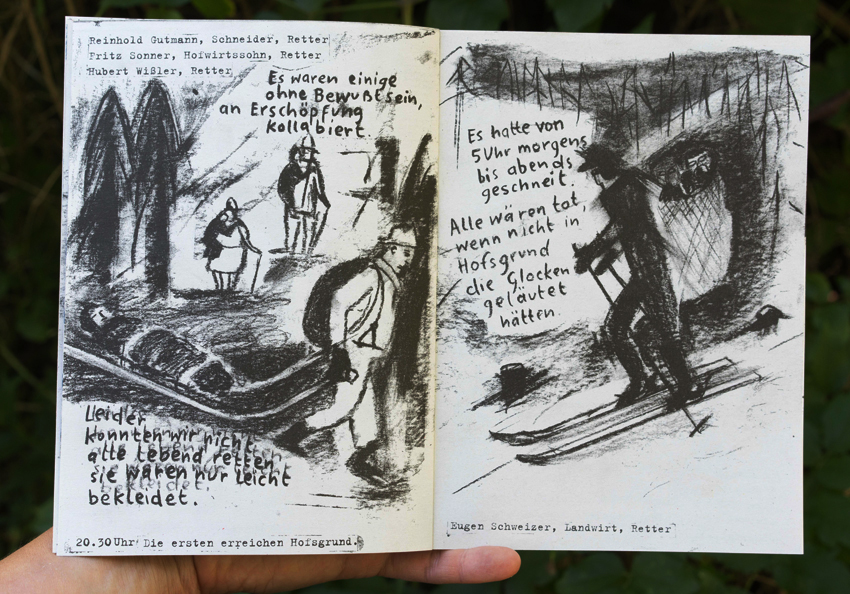 Reinhold Gutmann, Schneider, Retter
Fritz Sonner, Hofwirtssohn, Retter
Hubert Wißler, Retter
Es waren einige
ohne Bewußtsein,
an Erschöpfung
kollabiert.
Leider
konnten wir nicht
alle lebend retten,
sie waren nur leicht
bekleidet.
20.30 Uhr Die ersten erreichen Hofsgrund.
Es hatte von
5 Uhr morgens
bis abends
geschneit.
Alle wären tot,
wenn nicht in
Hofsgrund
die Glocken
geläutet
hätten.
Eugen Schweizer, Landwirt, Retter